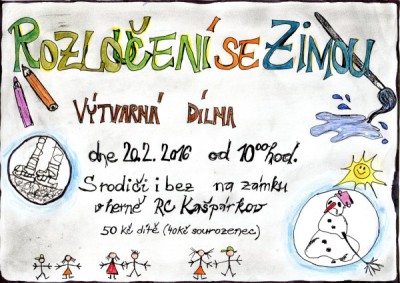 ROZLOUČENÍ SE ZIMOU
VÝTVARNÁ DÍLNA
dne 20.2.2016 od 10⁰⁰hod.
S rodiči i bez na zámku
v herně RC Kašpárkov
50 kč dítě (40kč sourozenec)